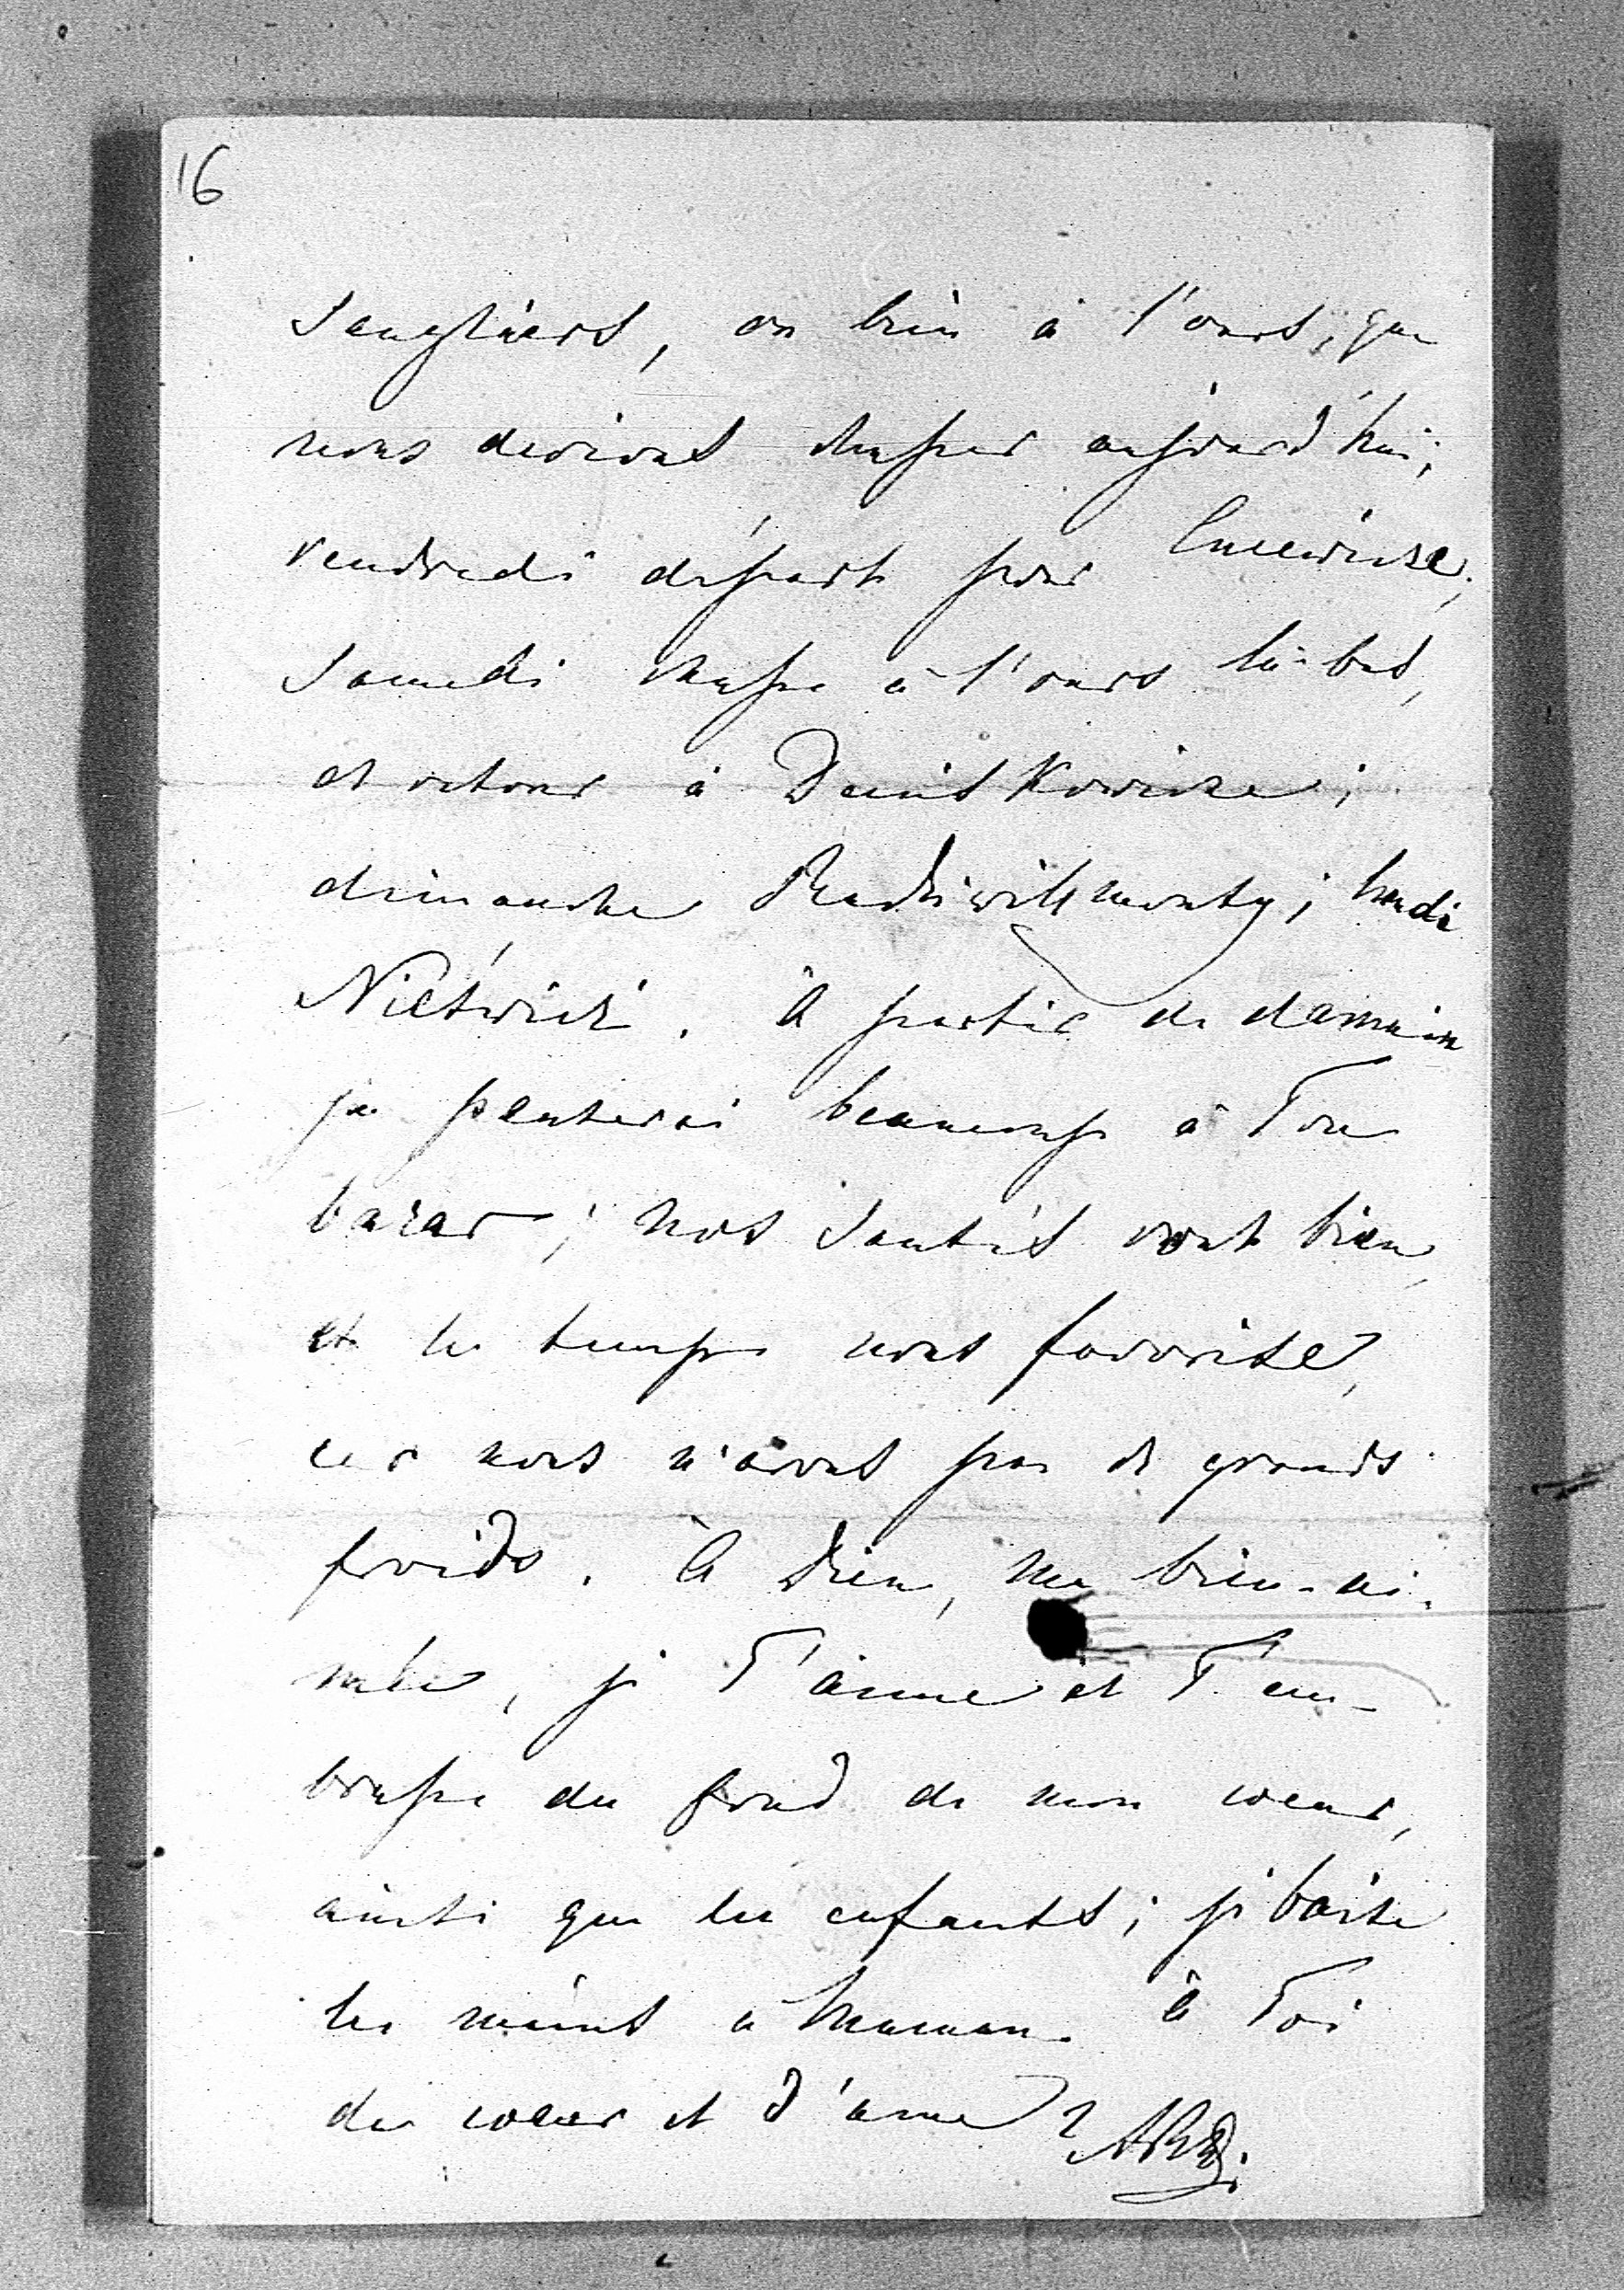 16
sangliers, ou bien à l'ours, que
nous devions chasser aujourd'hui;
vendredi départ pour
samedi chasse à l'ours là-bas,
et retour à Deniskowicze;
dimanche Radziwillmonty; lundi
Nieśwież. À partir de demain
je penserai beaucoup à Ton
bazar; nos santés vont bien
et le temps nous favorise,
car nous n'avons pas de grands
froids. À Dieu, ma bien-ai-
mée, je T'aime et T'em-
brasse du fond de mon coeur,
ainsi que les enfants; je baise
les mains à Maman. à Toi
de coeur et d'âme